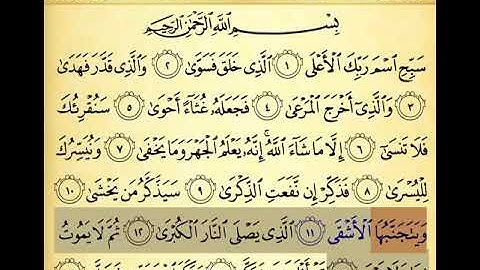 بِسْمِ ٱللَّهِ ٱلرَّحْمَٰنِ ٱلرَّحِيمِ
سَبِّحِ ٱسْمَ رَبِّكَ ٱلْأَعْلَى ١ ٱلَّذِى خَلَقَ فَسَوَّىٰ ٢ وَٱلَّذِى قَدَّرَ فَهَدَىٰ
٣ وَٱلَّذِىٓ أَخْرَجَ ٱلْمَرْعَىٰ ٤ فَجَعَلَهُۥ غُثَآءً أَحْوَىٰ ٥ سَنُقْرِئُكَ
فَلَا تَنسَىٰٓ ٦ إِلَّا مَا شَآءَ ٱللَّهُ ۚ إِنَّهُۥ يَعْلَمُ ٱلْجَهْرَ وَمَا يَخْفَىٰ ٧ وَنُيَسِّرُكَ
لِلْيُسْرَىٰ ٨ فَذَكِّرْ إِن نَّفَعَتِ ٱلذِّكْرَىٰ ٩ سَيَذَّكَّرُ مَن يَخْشَىٰ ١٠
وَيَتَجَنَّبُهَا ٱلْأَشْقَى ١١ ٱلَّذِى يَصْلَى ٱلنَّارَ ٱلْكُبْرَىٰ ١٢ ثُمَّ لَا يَمُوتُ